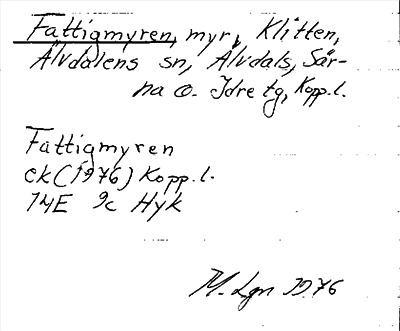 Fattigmyren, myr, Klitten,
Älvdalens sn, Älvdals, Sär-
na o. Idre tg, Kopp.l.
Fattigmyren
ek (1976) Kopp.l.
14E 9c Hyk
M. Lgn 1976